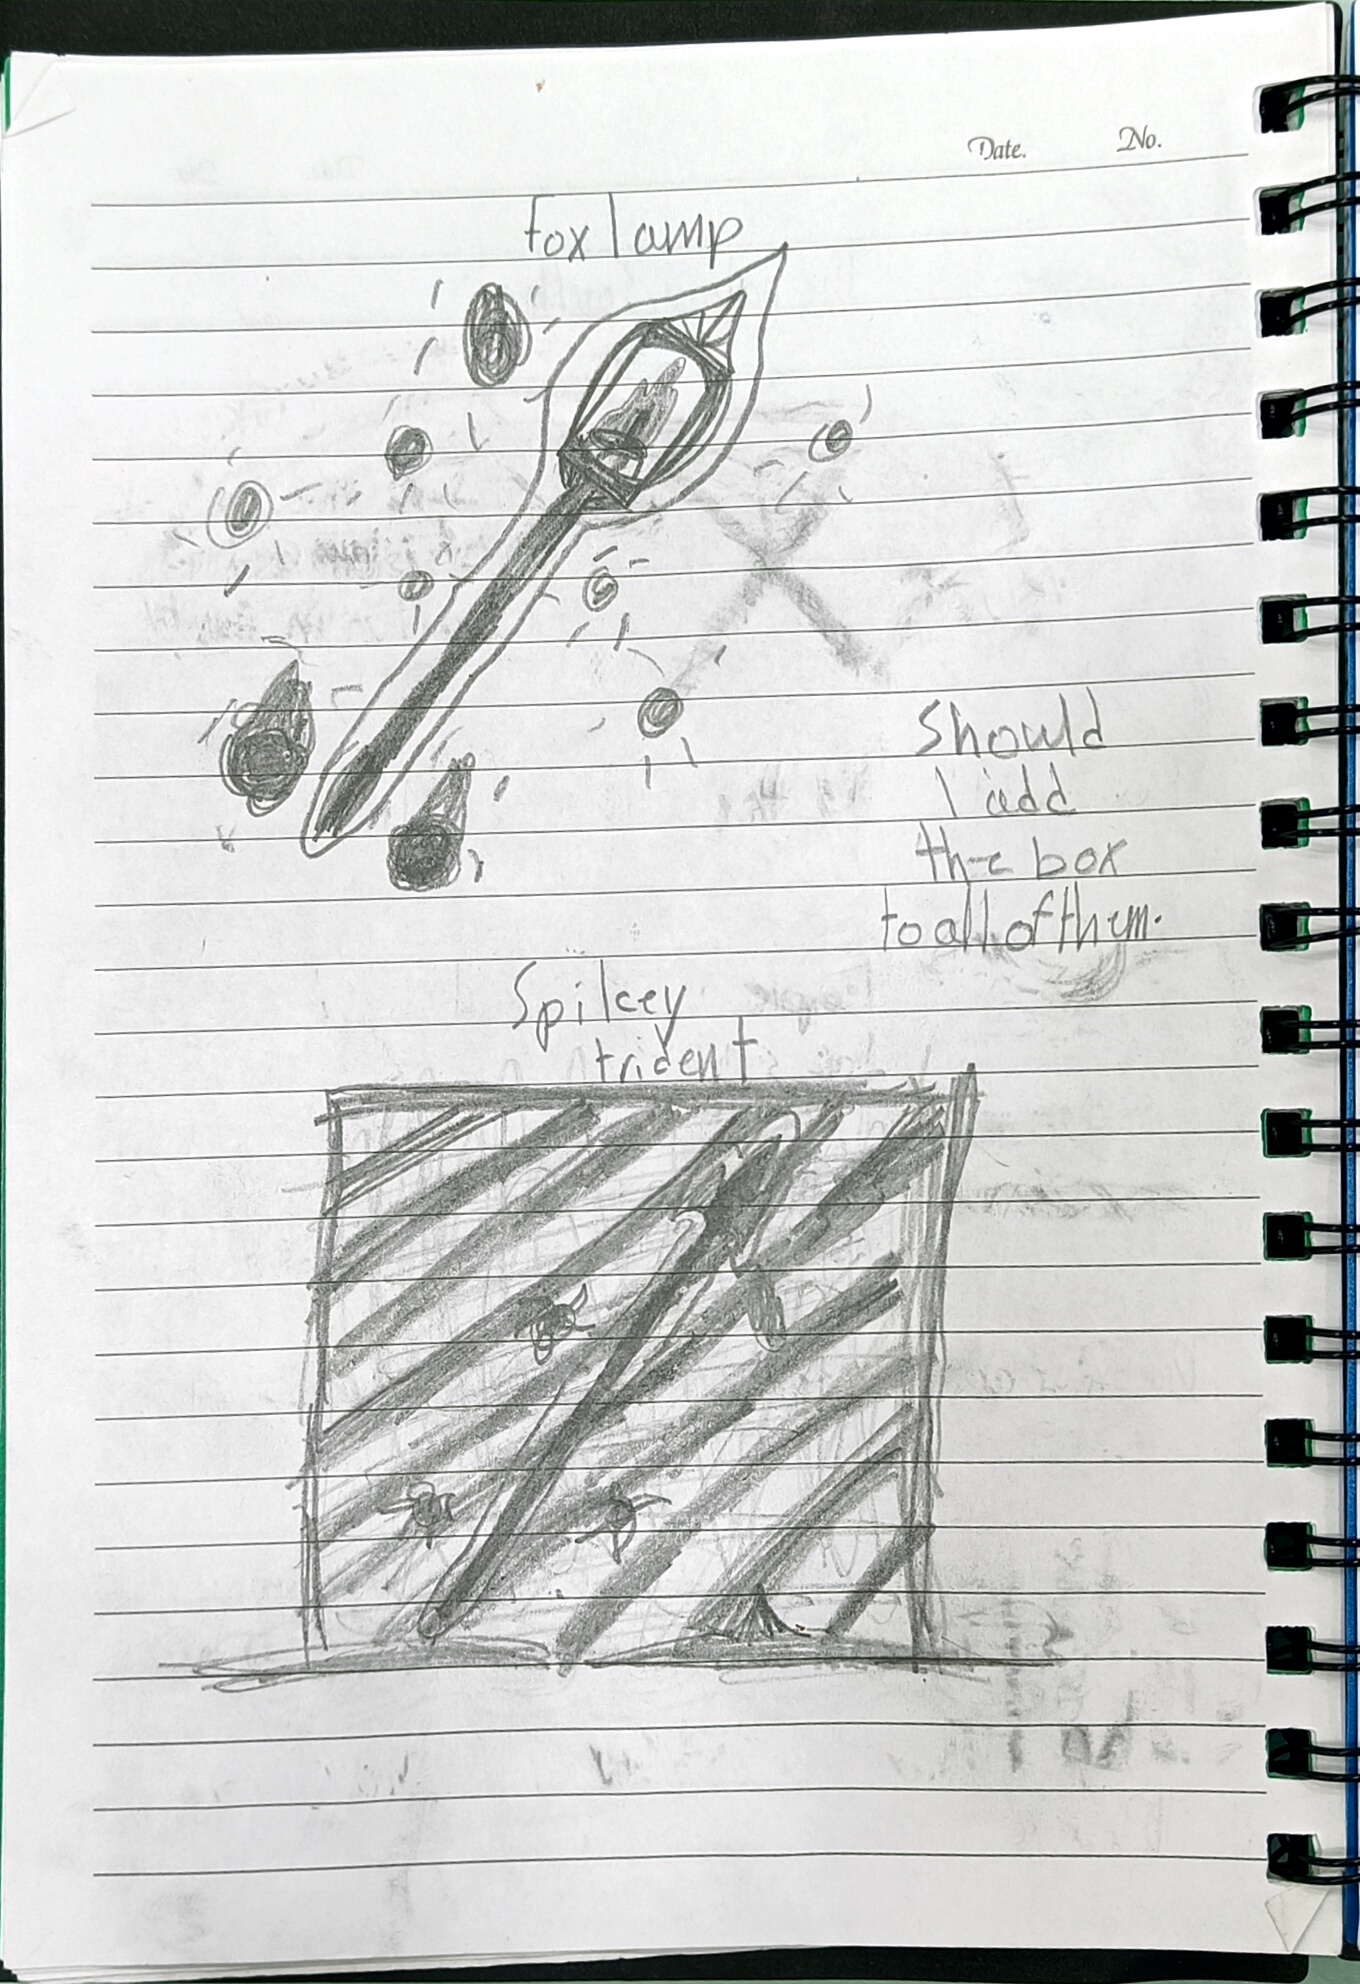 Date. No.
Fox lamp
Should
I add
the box
to all of them.
Spikey
trident